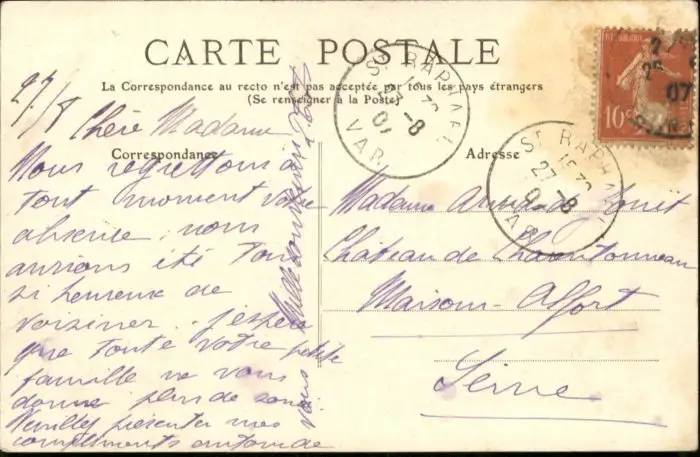 CARTE POSTALE
La Correspondance au recto n'est pas acceptée par tous les pays étrangers
(Se renseigner à la Poste)
27/8
Chère Madame
Correspondance
Nous regrettons à
tout moment votre
absence, nous
aurions été tous
si heureux de
voisiner. J'espère
que toute votre petite
famille ne vous
donne plus de souci
Veuillez présenter mes
compliments autour de
vous
Mille souvenirs
Adresse
Madame
Château de Charentonneau
Maisons-Alfort
Seine
ST RAPHAEL
27-8
07
VAR
ST RAPHAEL
27-8
07
VAR
10c
07